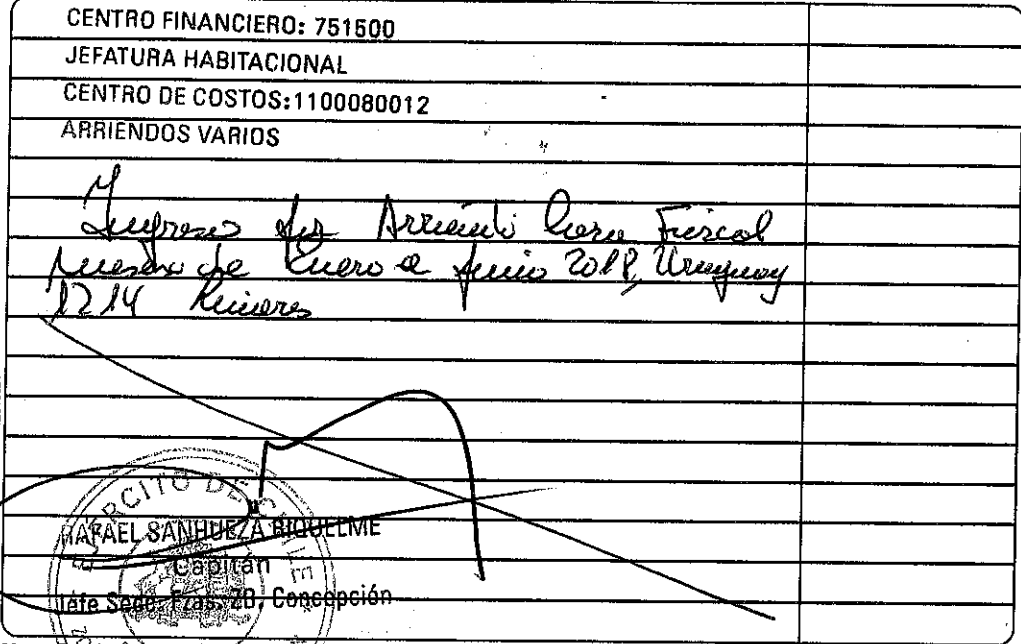 CENTRO FINANCIERO: 751500
JEFATURA HABITACIONAL
CENTRO DE COSTOS:1100080012
ARRIENDOS VARIOS
Ingreso por Arriendo Casa Fiscal
meses de Enero a Junio 2018, Uruguay
1214 Linares
EJÉRCITO DE CHILE
RAFAEL SANHUEZA RIQUELME
Capitán
Jefe Secc. Fzas. ZB, Concepción